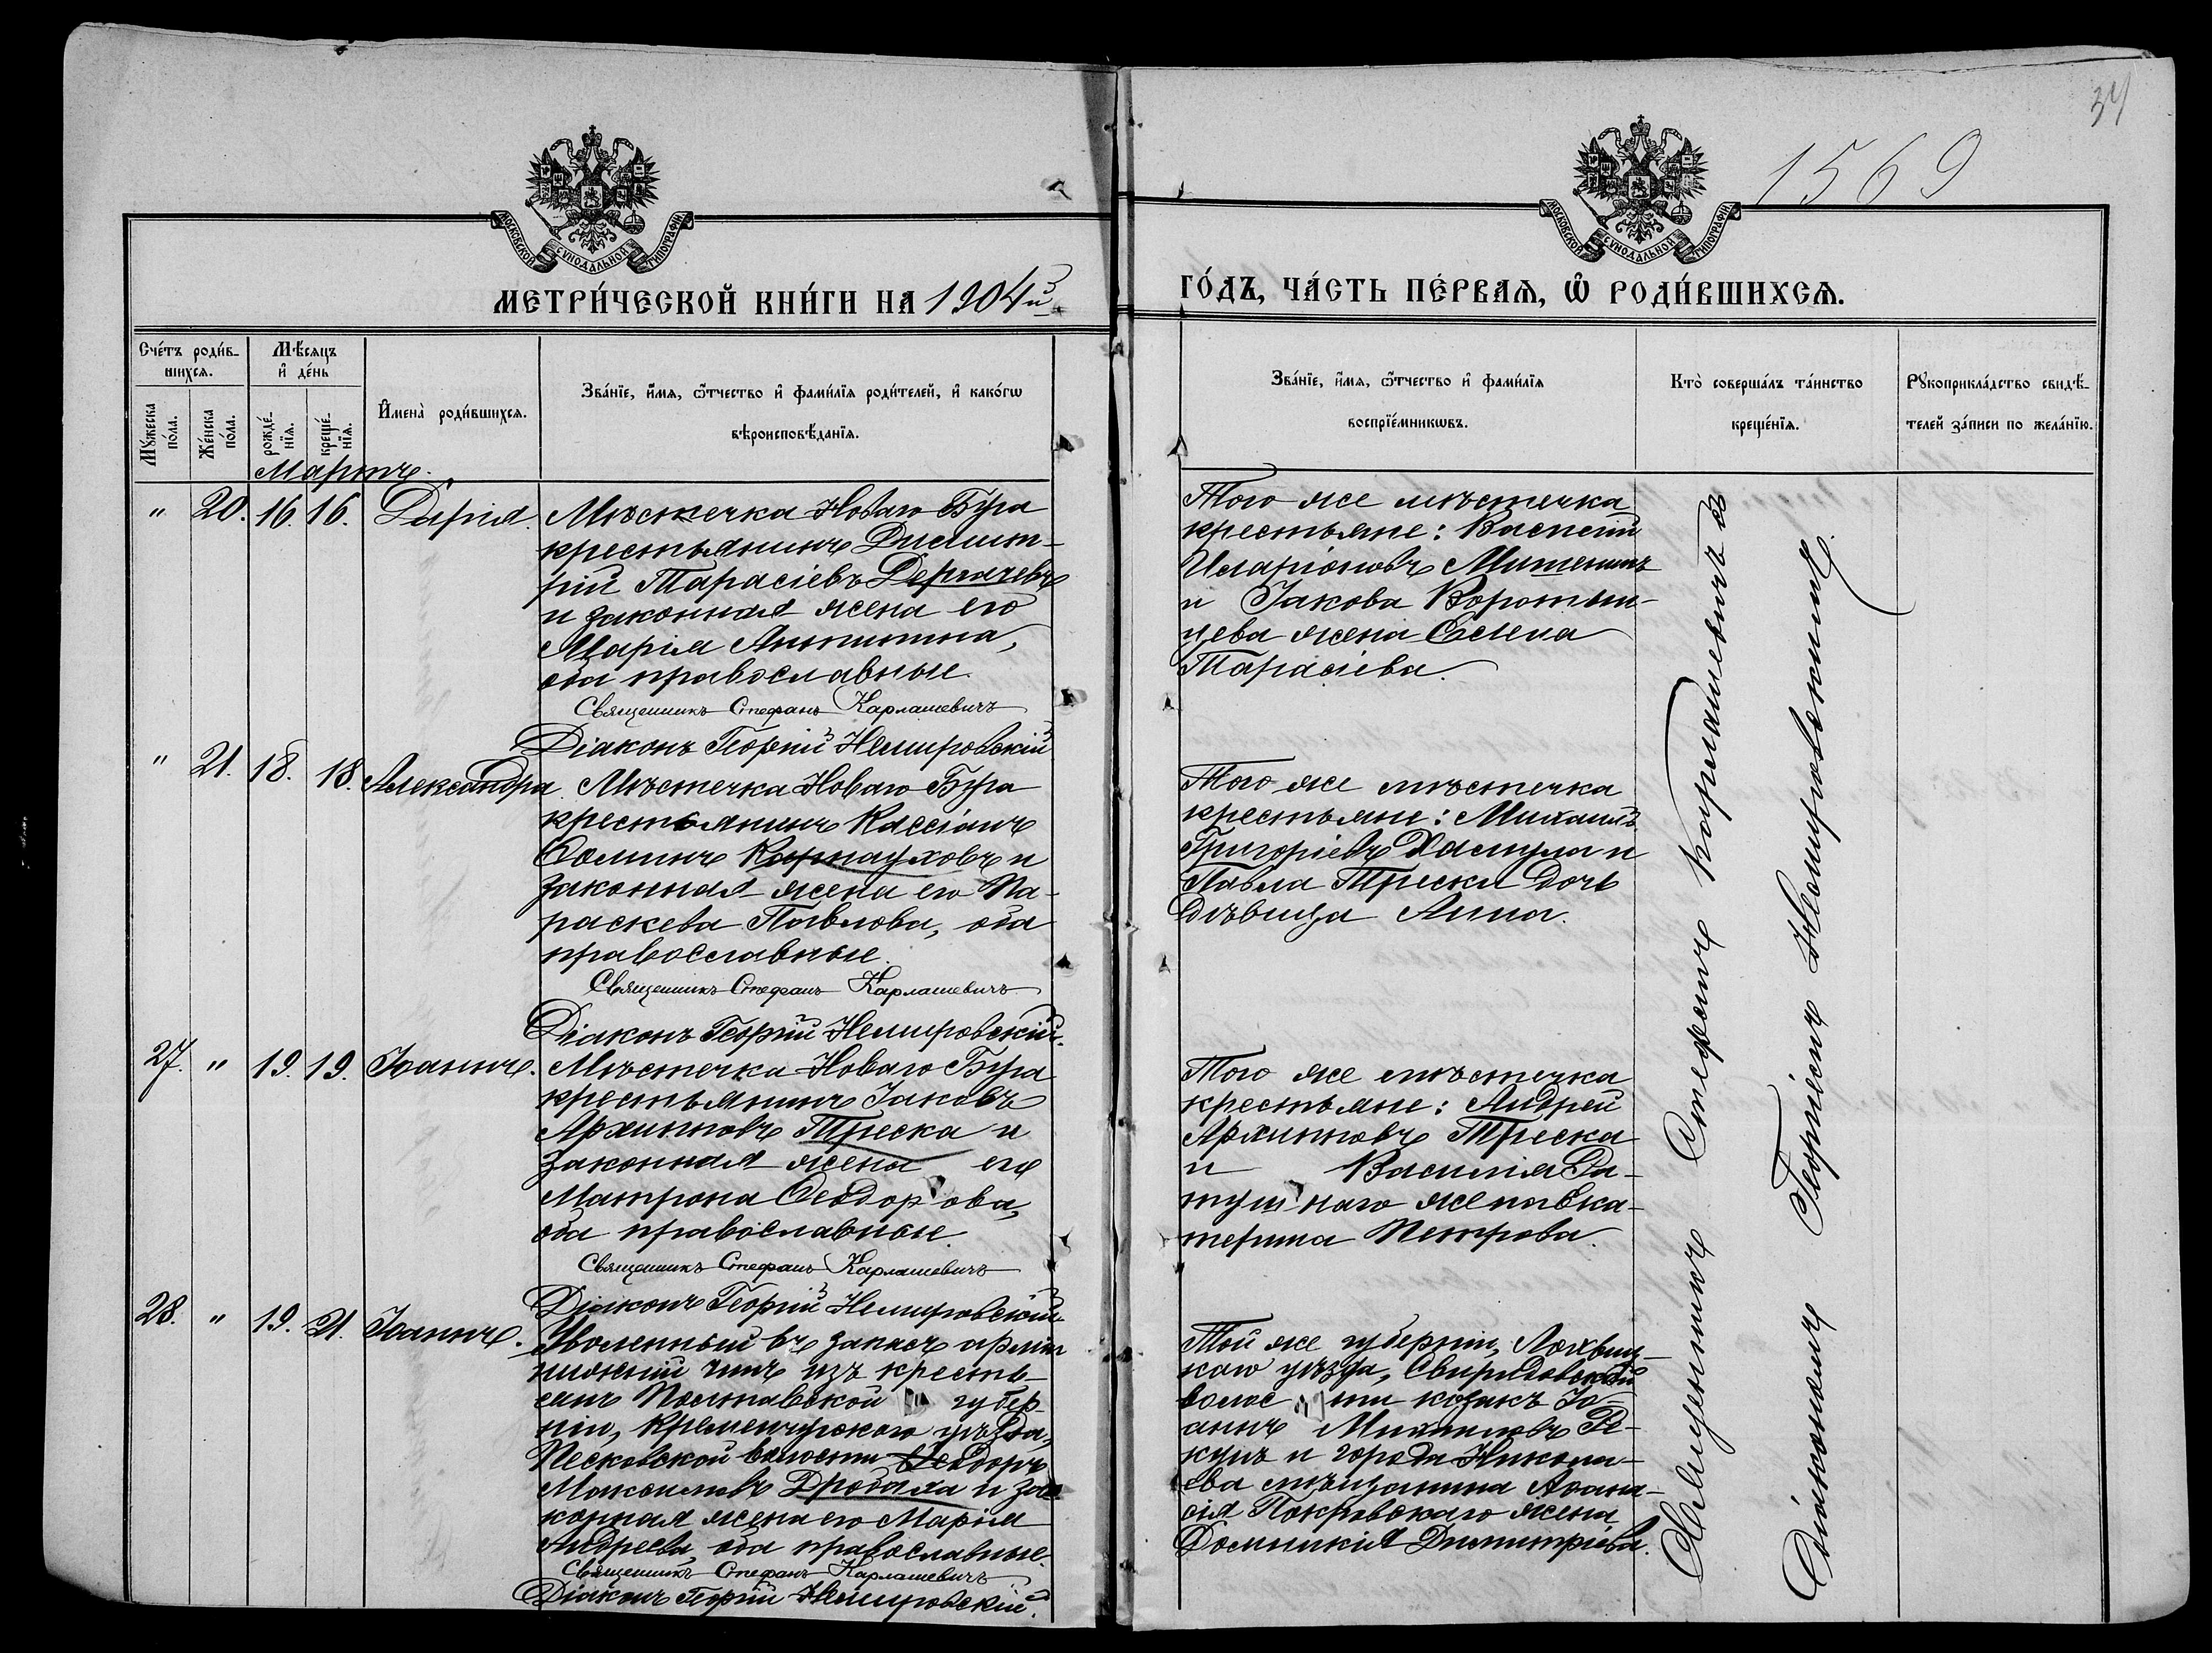 34
1569
МОСКОВСКОЙ СѴНОДАЛЬНОЙ ТИПОГРАФІИ
МОСКОВСКОЙ СѴНОДАЛЬНОЙ ТИПОГРАФІИ
МЕТРИ́ЧЕСКОЙ КНИ́ГИ НА 1904й
ГО́ДЪ, ЧА́СТЬ ПЕ́РВАѦ, Ѽ РОДИ́ВШИХСѦ.
Сче́тъ роди́в-
шихсѧ.
Мѣ́сяцъ
и҆ де́нь
Мꙋ́жеска
по́ла.
Же́нска
по́ла.
рожде́-
нїѧ.
креще́-
нїѧ.
И҆мена̀ роди́вшихсѧ.
Зва́нїе, и҆́мѧ, ѻ҆́тчество и҆ фами́лїѧ роди́телей, и҆ како́гѡ
вѣроисповѣ́данїѧ.
Зва́нїе, и҆́мѧ, ѻ҆́тчество и҆ фами́лїѧ
воспрїе́мникѡвъ.
Кто̀ соверша́лъ та́инство
креще́нїѧ.
Рꙋкоприкла́дство свидѣ́-
телей за́писи по жела́нїю.
Мартъ.
" 20. 16. 16. Дарія.
Мѣстечка Новаго Буга
крестьянинъ Димит-
рій Тарасіевъ Дергачевъ
и законная жена его
Марія Антипина,
оба православные.
Священникъ Стефанъ Карлашевичъ
Діаконъ Георгій Немировскій
Того же мѣстечка
крестьяне: Василій
Иларіоновъ Митенинъ
и Іакова Воротын-
цева жена Елена
Тарасіева.
" 21. 18. 18. Александра.
Мѣстечка Новаго Буга
крестьянинъ Кассіанъ
Ѳоминъ Карнауховъ и
законная жена его Па-
раскева Павлова, оба
православные.
Священникъ Стефанъ Карлашевичъ
Діаконъ Георгій Немировскій.
Того же мѣстечка
крестьяне: Михаилъ
Григоріевъ Хамула и
Павла Трески дочь
дѣвица Анна.
27. " 19. 19. Іоаннъ.
Мѣстечка Новаго Буга
крестьянинъ Іаковъ
Архиповъ Треска и
законная жена его
Матрона Ѳеодорова,
оба православные.
Священникъ Стефанъ Карлашевичъ
Діаконъ Георгій Немировскій
Того же мѣстечка
крестьяне: Андрей
Архиповъ Треска
и Василія Ра-
тушнаго жена Ека-
терина Петрова.
28. " 19. 21. Іоаннъ.
Уволенный въ запасъ арміи
нижній чинъ изъ кресть-
янъ Полтавской губер-
ніи, Кременчугскаго уѣзда,
Песковской волости Ѳеодоръ
Максимовъ Дробаха и за-
конная жена его Марія
Андреева, оба православные.
Священникъ Стефанъ Карлашевичъ
Діаконъ Георгій Немировскій.
Той же губерніи, Лохвиц-
каго уѣзда, Свиридовской
волости козакъ Іо-
аннъ Михаиловъ Ре-
кунъ и города Никола-
ева мѣщанина Аѳана-
сія Покровскаго жена
Домникія Димитріева.
Священникъ Стефанъ Карлашевичъ съ
Діакономъ Георгіемъ Немировскимъ.